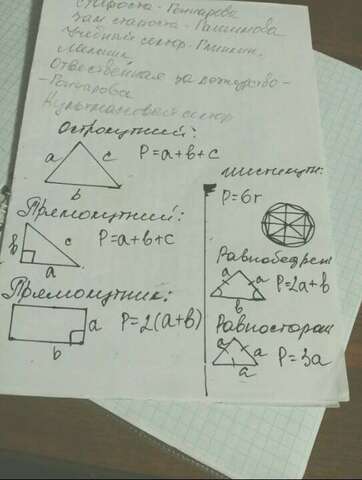 Староста - Гончарова
Зам старосты - Галимова
Учебный сектор - Глинкин,
Ответственная за дежурство -
- Гончарова
Культмассовый сектор
Остроκутний:
a c P=a+b+c
b
Прямокутний:
b c P=a+b+c
a
Прямокутник:
a P=2(a+b)
b
шестикутн:
P=6r
Равнобедрен
a a P=2a+b
b
Равносторон
a a P=3a
a